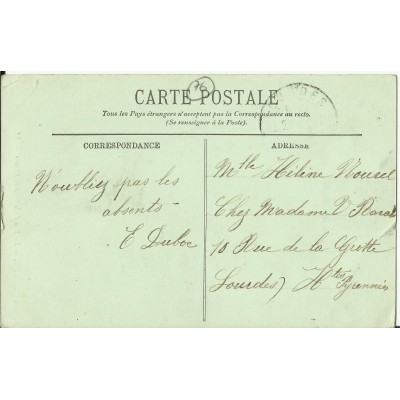 76
CARTE POSTALE
Tous les Pays étrangers n'acceptent pas la Correspondance au recto.
(Se renseigner à la Poste).
CORRESPONDANCE
N'oubliez pas les
absents
E Duboc
ADRESSE
Mlle Hélène
Chez Madame
10 Rue de la Grotte
Lourdes) Htes Pyrennées